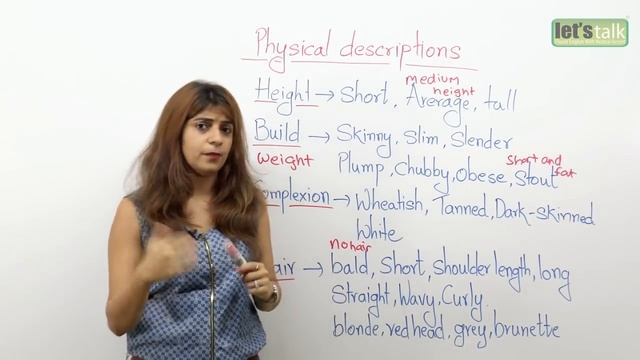 let's talk
Physical descriptions
medium
height
Height → Short, Average, tall
Build → Skinny, Slim, Slender
weight
Short and
fat
Plump, Chubby, Obese, Stout
Complexion → Wheatish, Tanned, Dark-skinned
White
no hair
air → bald, Short, Shoulder length, long
Straight, Wavy, Curly.
blonde, red head, grey, brunette